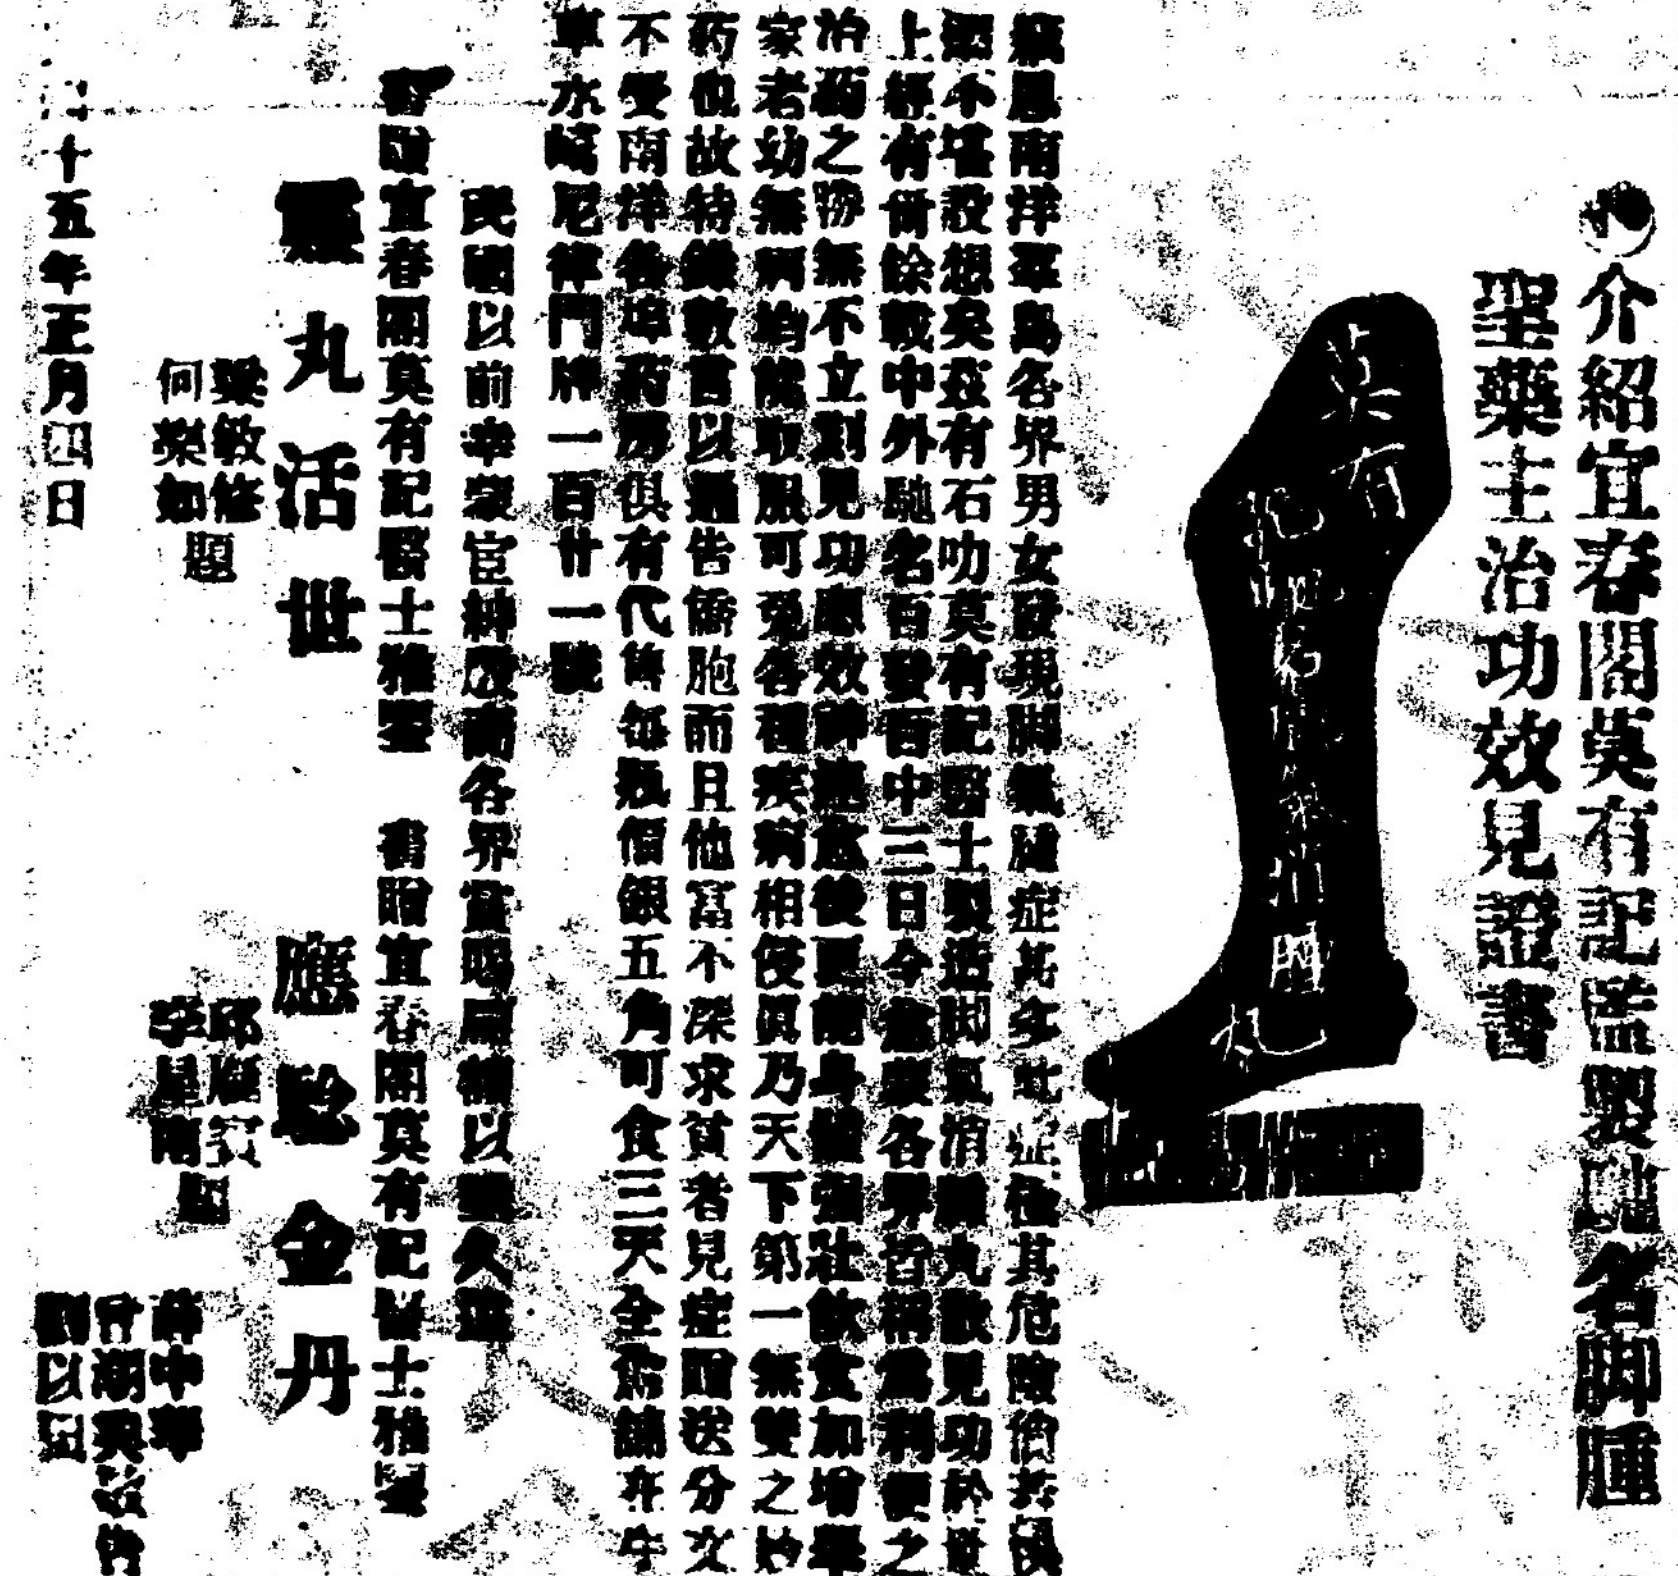 介紹宜春閣莫有記監製馳名脚腫
聖藥主治功效見證書
莫有記
馳名
消
風
丸
竊思南洋羣島各界男女發現脚氣腫症甚多此症極其危險倘若悞
不堪設想矣茲有石叻莫有記醫士製造脚氣消腫丸散見功於世
上經有年餘戰中外馳名百發百中三日令愈衆各界皆稱爲利便之
治藥之物無不立刻見功應效神速愈後更能身體强壯飲食加增舉
家老幼無病均能取服可免各種疾病相侵眞乃天下第一無雙之妙
葯也故特錄數言以通告僑胞而且他富不深求貧者見症贈送分文
不受南洋各埠葯房俱有代售每瓶價銀五角可食三天全愈舖在牛
車水嗬尼律門牌一百廿一號
民國以前幸蒙宦紳及商各界賞賜扁額以垂久遠
書贈宜春閣莫有記醫士雅鑒
靈丸活世
梁敏修
何榮如
題
書贈宜春閣莫有記醫士雅鑒
應驗金丹
邱雁賓
李星南
題
薛中華
劉以
十五年正月四日